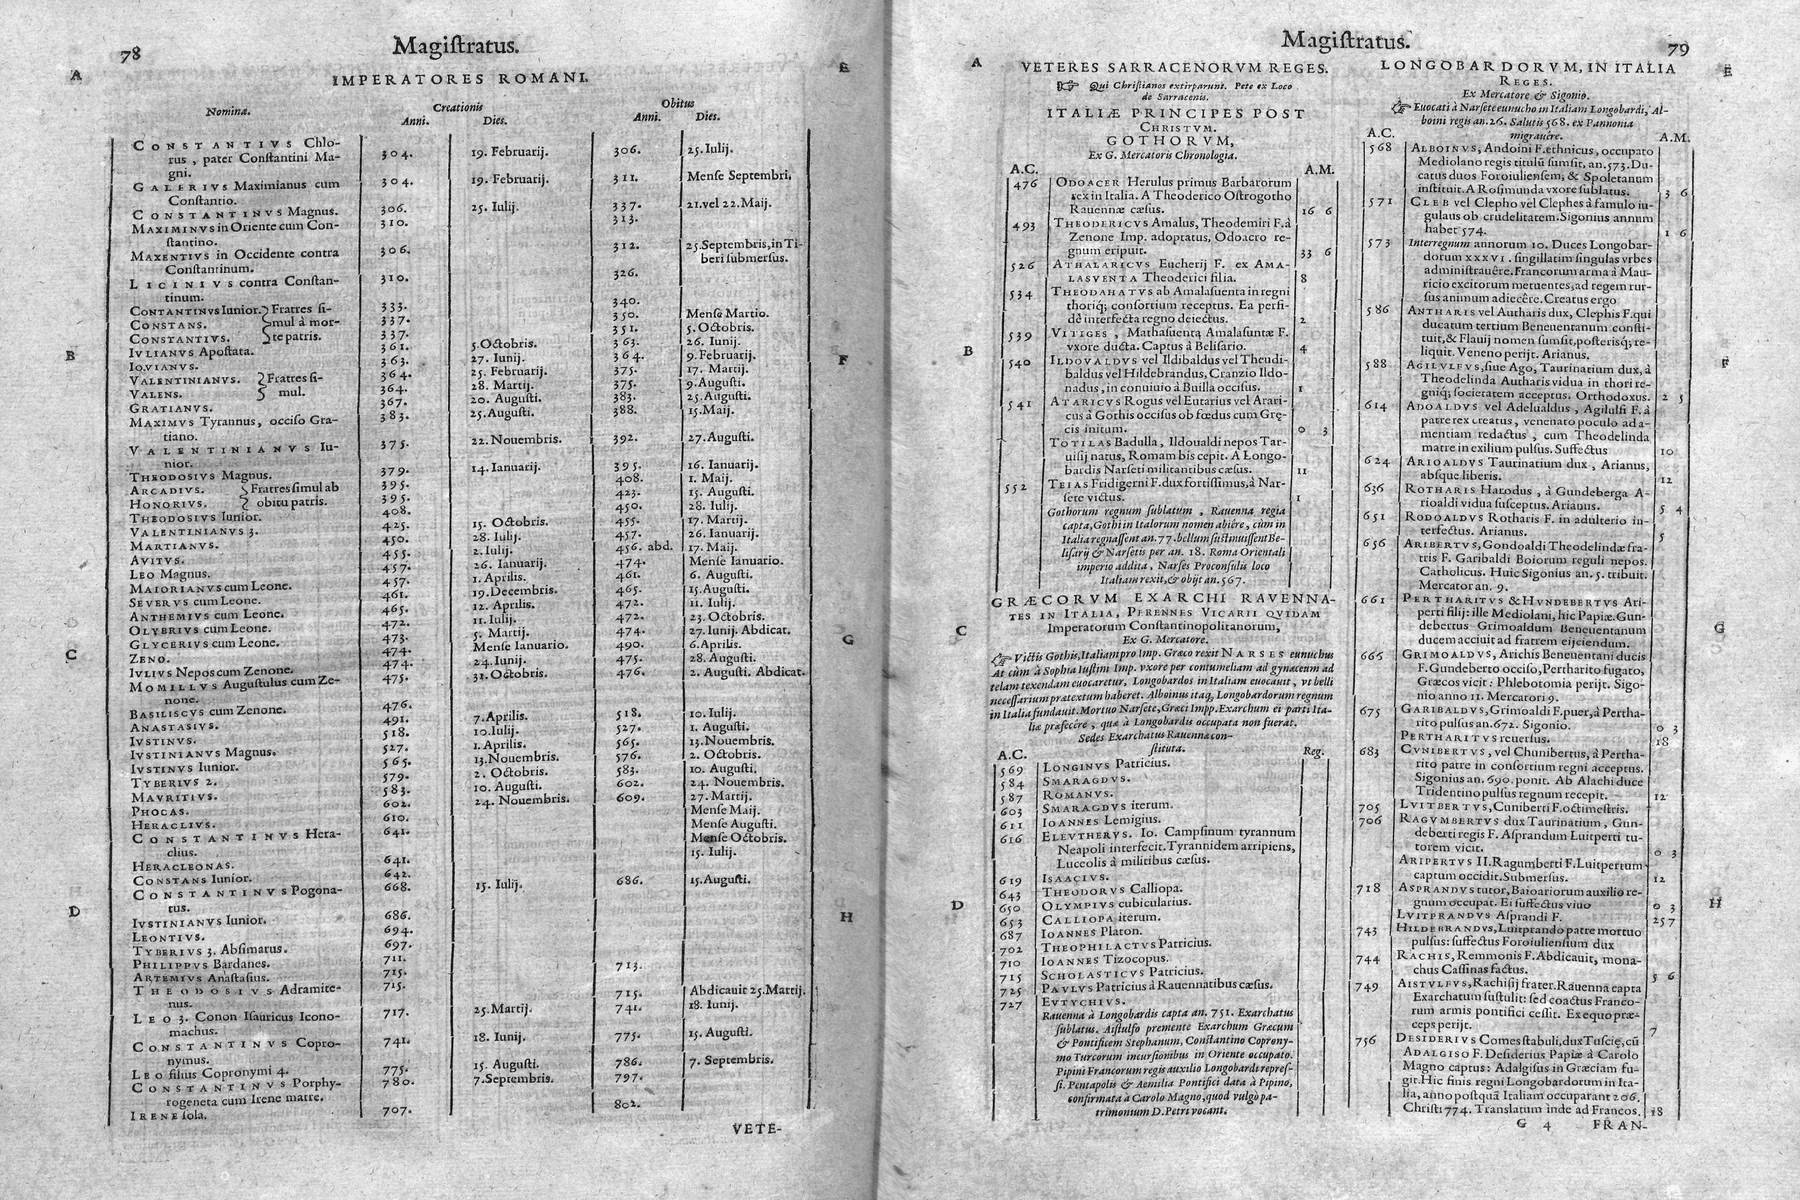 78
Magiſtratus.
IMPERATORES ROMANI.
Nomina.
Creationis
Anni. Dies.
Obitus
Anni. Dies.
CONSTANTIVS Chlo- 304. 19. Februarij. 306. 25. Iulij.
rus, pater Conſtantini Ma-
gni.
GALERIVS Maximianus cum 304. 19. Februarij. 311. Menſe Septembri.
Conſtantio.
CONSTANTINVS Magnus. 306. 25. Iulij. 337. 21. vel 22. Maij.
MAXIMINVS in Oriente cum Con- 310. 313.
ſtantino.
MAXENTIVS in Occidente contra 306. 312. 25. Septembris, in Ti-
Conſtantinum. beri ſubmerſus.
LICINIVS contra Conſtan- 310. 326.
tinum.
CONTANTINVS Iunior. Fratres ſi- 333. 340.
CONSTANS. mul à mor- 337. 350. Menſe Martio.
CONSTANTIVS. te patris. 337. 351. 5. Octobris.
IVLIANVS Apoſtata. 361. 5. Octobris. 363. 26. Iunij.
IOVIANVS. 363. 27. Iunij. 364. 9. Februarij.
VALENTINIANVS. Fratres ſi- 364. 25. Februarij. 375. 17. Martij.
VALENS. mul. 364. 28. Martij. 375. 9. Auguſti.
GRATIANVS. 367. 20. Auguſti. 383. 25. Auguſti.
MAXIMVS Tyrannus, occiſo Gra- 383. 25. Auguſti. 388. 15. Maij.
tiano.
VALENTINIANVS Iu- 375. 22. Nouembris. 392. 27. Auguſti.
nior.
THEODOSIVS Magnus. 379. 14. Ianuarij. 395. 16. Ianuarij.
ARCADIVS. Fratres ſimul ab 395. 408. 1. Maij.
HONORIVS. obitu patris. 395. 423. 15. Auguſti.
THEODOSIVS Iunior. 408. 450. 28. Iulij.
VALENTINIANVS 3. 425. 15. Octobris. 455. 17. Martij.
MARTIANVS. 450. 28. Iulij. 457. 26. Ianuarij.
AVITVS. 455. 2. Iulij. 456. abd. 17. Maij.
LEO Magnus. 457. 26. Ianuarij. 474. Menſe Ianuario.
MAIORIANVS cum Leone. 457. 1. Aprilis. 461. 6. Auguſti.
SEVERVS cum Leone. 461. 19. Decembris. 465. 15. Auguſti.
ANTHEMIVS cum Leone. 465. 12. Aprilis. 472. 11. Iulij.
OLYBRIVS cum Leone. 472. 11. Iulij. 472. 23. Octobris.
GLYCERIVS cum Leone. 473. 5. Martij. 474. 27. Iunij. Abdicat.
ZENO. 474. Menſe Ianuario. 490. 6. Aprilis.
IVLIVS Nepos cum Zenone. 474. 24. Iunij. 475. 28. Auguſti.
MOMILLVS Auguſtulus cum Ze- 475. 31. Octobris. 476. 2. Auguſti. Abdicat.
none.
BASILISCVS cum Zenone. 476.
ANASTASIVS. 491. 7. Aprilis. 518. 10. Iulij.
IVSTINVS. 518. 10. Iulij. 527. 1. Auguſti.
IVSTINIANVS Magnus. 527. 1. Aprilis. 565. 13. Nouembris.
IVSTINVS Iunior. 565. 13. Nouembris. 576. 2. Octobris.
TYBERIVS 2. 579. 2. Octobris. 583. 10. Auguſti.
MAVRITIVS. 583. 10. Auguſti. 602. 24. Nouembris.
PHOCAS. 602. 24. Nouembris. 609. 27. Martij.
HERACLIVS. 610. Menſe Maij.
CONSTANTINVS Hera- 641. Menſe Auguſti.
clius. Menſe Octobris.
HERACLEONAS. 641. 15. Iulij.
CONSTANS Iunior. 642.
CONSTANTINVS Pogona- 668. 15. Iulij. 686. 15. Auguſti.
tus.
IVSTINIANVS Iunior. 686.
LEONTIVS. 694.
TYBERIVS 3. Abſimarus. 697.
PHILIPPVS Bardanes. 711. 713.
ARTEMIVS Anaſtaſius. 715.
THEODOSIVS Adramite- 715. 715. Abdicauit 25. Martij.
nus.
LEO 3. Conon Iſauricus Icono- 717. 25. Martij. 741. 18. Iunij.
machus.
CONSTANTINVS Copro- 741. 18. Iunij. 775. 15. Auguſti.
nymus.
LEO filius Copronymi 4. 775. 15. Auguſti. 786. 7. Septembris.
CONSTANTINVS Porphy- 780. 7. Septembris. 797.
rogeneta cum Irene matre.
IRENE ſola. 707. 802.
VETE-
A
B
C
D
E
F
G
H
Magiſtratus.
79
VETERES SARRACENORVM REGES.
Qui Chriſtianos extirparunt. Pete ex Loco
de Sarracenis.
ITALIÆ PRINCIPES POST
CHRISTVM.
GOTHORVM,
Ex G. Mercatoris Chronologia.
A.C. A.M.
476 ODOACER Herulus primus Barbarorum
rex in Italia. A Theoderico Oſtrogotho
Rauennæ cæſus. 16 6
493 THEODERICVS Amalus, Theodemiri F. à
Zenone Imp. adoptatus, Odoacro re-
gnum eripuit. 33 6
526 ATHALARICVS Eucherij F. ex AMA-
LASVENTA Theoderici filia. 8
534 THEODAHATVS ab Amalaſuenta in regni
thoriq́; conſortium receptus. Ea perfi-
dè interfecta regno deiectus. 2
539 VITIGES, Mathaſuentæ Amalaſuntæ F.
vxore ducta. Captus à Beliſario. 4
540 ILDOVALDVS vel Ildibaldus vel Theudi-
baldus vel Hildebrandus, Cranzio Ildo-
nadus, in conuiuio à Builla occiſus. 1
541 ATARICVS Rogus vel Eutarius vel Arari-
cus à Gothis occiſus ob fœdus cum Grę-
cis initum. 0 3
TOTILAS Badulla, Ildoualdi nepos Tar-
uiſij natus, Romam bis cepit. A Longo-
bardis Narſeti militantibus cæſus. 11
552 TEIAS Fridigerni F. dux fortiſſimus, à Nar-
ſete victus. 1
Gothorum regnum ſublatum, Rauenna regia
capta, Gothi in Italorum nomen abiêre, cùm in
Italia regnaſſent an. 77. bellum ſuſtinuiſſent Be-
liſarij & Narſetis per an. 18. Roma Orientali
imperio addita, Narſes Proconſulis loco
Italiam rexit, & obijt an. 567.
GRÆCORVM EXARCHI RAVENNA-
TES IN ITALIA, PERENNES VICARII QVIDAM
Imperatorum Conſtantinopolitanorum,
Ex G. Mercatore.
Victis Gothis, Italiam pro Imp. Græco rexit NARSES eunuchus
At cùm à Sophia Iuſtini Imp. vxore per contumeliam ad gynæceum ad
telam texendam euocaretur, Longobardos in Italiam euocauit, vt belli
neceſſarium prætextum haberet. Alboinus itaq, Longobardorum regnum
in Italia fundauit. Mortuo Narſete, Græci Impp. Exarchum ei parti Ita-
liæ præfecêre, quæ à Longobardis occupata non fuerat.
Sedes Exarchatus Rauenna con-
ſtituta.
A.C. Reg.
569 LONGINVS Patricius.
584 SMARAGDVS.
587 ROMANVS.
603 SMARAGDVS iterum.
611 IOANNES Lemigius.
616 ELEVTHERVS. Io. Campſinum tyrannum
Neapoli interfecit. Tyrannidem arripiens,
Luceolis à militibus cæſus.
619 ISAACIVS.
643 THEODORVS Calliopa.
650 OLYMPIVS cubicularius.
653 CALLIOPA iterum.
687 IOANNES Platon.
702 THEOPHILACTVS Patricius.
710 IOANNES Tizocopus.
715 SCHOLASTICVS Patricius.
725 PAVLVS Patricius à Rauennatibus cæſus.
727 EVTYCHIVS.
Rauenna à Longobardis capta an. 751. Exarchatus
ſublatus. Aiſtulfo premente Exarchum Græcum
& Pontificem Stephanum, Conſtantino Coprony-
mo Turcorum incurſionibus in Oriente occupato.
Pipini Francorum regis auxilio Longobardi repreſ-
ſi. Pentapolis & Aemilia Pontifici data à Pipino,
confirmata à Carolo Magno, quod vulgò pa-
trimonium D. Petri vocant.
LONGOBARDORVM, IN ITALIA
REGES.
Ex Mercatore & Sigonio.
Euocati à Narſete eunucho in Italiam Longobardi, Al-
boini regis an. 26. Salutis 568. ex Pannonia
migrauêre.
A.C. A.M.
568 ALBOINVS, Andoini F. ethnicus, occupato
Mediolano regis titulũ ſumſit. an. 573. Du-
catus duos Foroiulienſem, & Spoletanum
inſtituit. A Roſimunda vxore ſublatus. 3 6
571 CLEB vel Clepho vel Clephes à famulo iu-
gulaus ob crudelitatem. Sigonius annum
habet 574. 1 6
573 Interregnum annorum 10. Duces Longobar-
dorum XXXVI. ſingillatim ſingulas vrbes
adminiſtrauêre. Francorum arma à Mau-
ricio excitorum metuentes, ad regem rur-
ſus animum adiecêre. Creatus ergo
586 ANTHARIS vel Autharis dux, Clephis F. qui
ducatum tertium Beneuentanum conſti-
tuit, & Flauij nomen ſumſit, poſterisq́; re-
liquit. Veneno perijt. Arianus.
588 AGILVLFVS, ſiue Ago, Taurinatium dux, à
Theodelinda Autharis vidua in thori re-
gniq́; ſocietatem acceptus. Orthodoxus. 2 5
614 ADOALDVS vel Adelualdus, Agilulfi F. à
patre rex creatus, venenato poculo ad a-
mentiam redactus, cum Theodelinda
matre in exilium pulſus. Suffectus 10
624 ARIOALDVS Taurinatium dux, Arianus,
abſque liberis. 12
636 ROTHARIS Harodus, à Gundeberga A-
rioaldi vidua ſuſceptus. Arianus. 5 4
651 RODOALDVS Rotharis F. in adulterio in-
terfectus. Arianus. 5
656 ARIBERTVS, Gondoaldi Theodelindæ fra-
tris F. Garibaldi Boiorum reguli nepos.
Catholicus. Huic Sigonius an. 5. tribuit.
Mercator an. 9.
661 PERTHARITVS & HVNDEBERTVS Ari-
perti filij: ille Mediolani, hic Papiæ. Gun-
debertus Grimoaldum Beneuentanum
ducem acciuit ad fratrem eijciendum.
665 GRIMOALDVS, Arichis Beneuentani ducis
F. Gundeberto occiſo, Pertharito fugato,
Græcos vicit: Phlebotomia perijt. Sigo-
nio anno 11. Mercatori 9.
675 GARIBALDVS, Grimoaldi F. puer, à Pertha-
rito pulſus an. 672. Sigonio. 0 3
PERTHARITVS reuerſus. 18
683 CVNIBERTVS, vel Chunibertus, à Pertha-
rito patre in conſortium regni acceptus.
Sigonius an. 690. ponit. Ab Alachi duce
Tridentino pulſus regnum recepit. 12
705 LVITBERTVS, Cuniberti F. octimeſtris.
706 RAGVMBERTVS dux Taurinatium, Gun-
deberti regis F. Aſprandum Luitperti tu-
torem vicit. 0 3
ARIPERTVS II. Ragumberti F. Luitpertum
captum occidit. Submerſus. 12
718 ASPRANDVS tutor, Baioariorum auxilio re-
gnum occupat. Ei ſuffectus viuo 0 3
LVITPRANDVS Aſprandi F. 25 7
743 HILDEBRANDVS, Luitprando patre mortuo
pulſus: ſuffectus Foroiulienſium dux
744 RACHIS, Remmonis F. Abdicauit, mona-
chus Caſſinas factus. 5 6
749 AISTVLFVS, Rachiſij frater. Rauenna capta
Exarchatum ſuſtulit: ſed coactus Franco-
rum armis pontifici ceſſit. Ex equo præ-
ceps perijt. 7
756 DESIDERIVS Comes ſtabuli, dux Tuſcię, cũ
ADALGISO F. Deſiderius Papiæ à Carolo
Magno captus: Adalgiſus in Græciam fu-
git. Hic finis regni Longobardorum in Ita-
lia, anno poſtquã Italiam occuparant 206.
Chriſti 774. Translatum inde ad Francos. 18
G 4 FRAN-
A
B
C
D
E
F
G
H